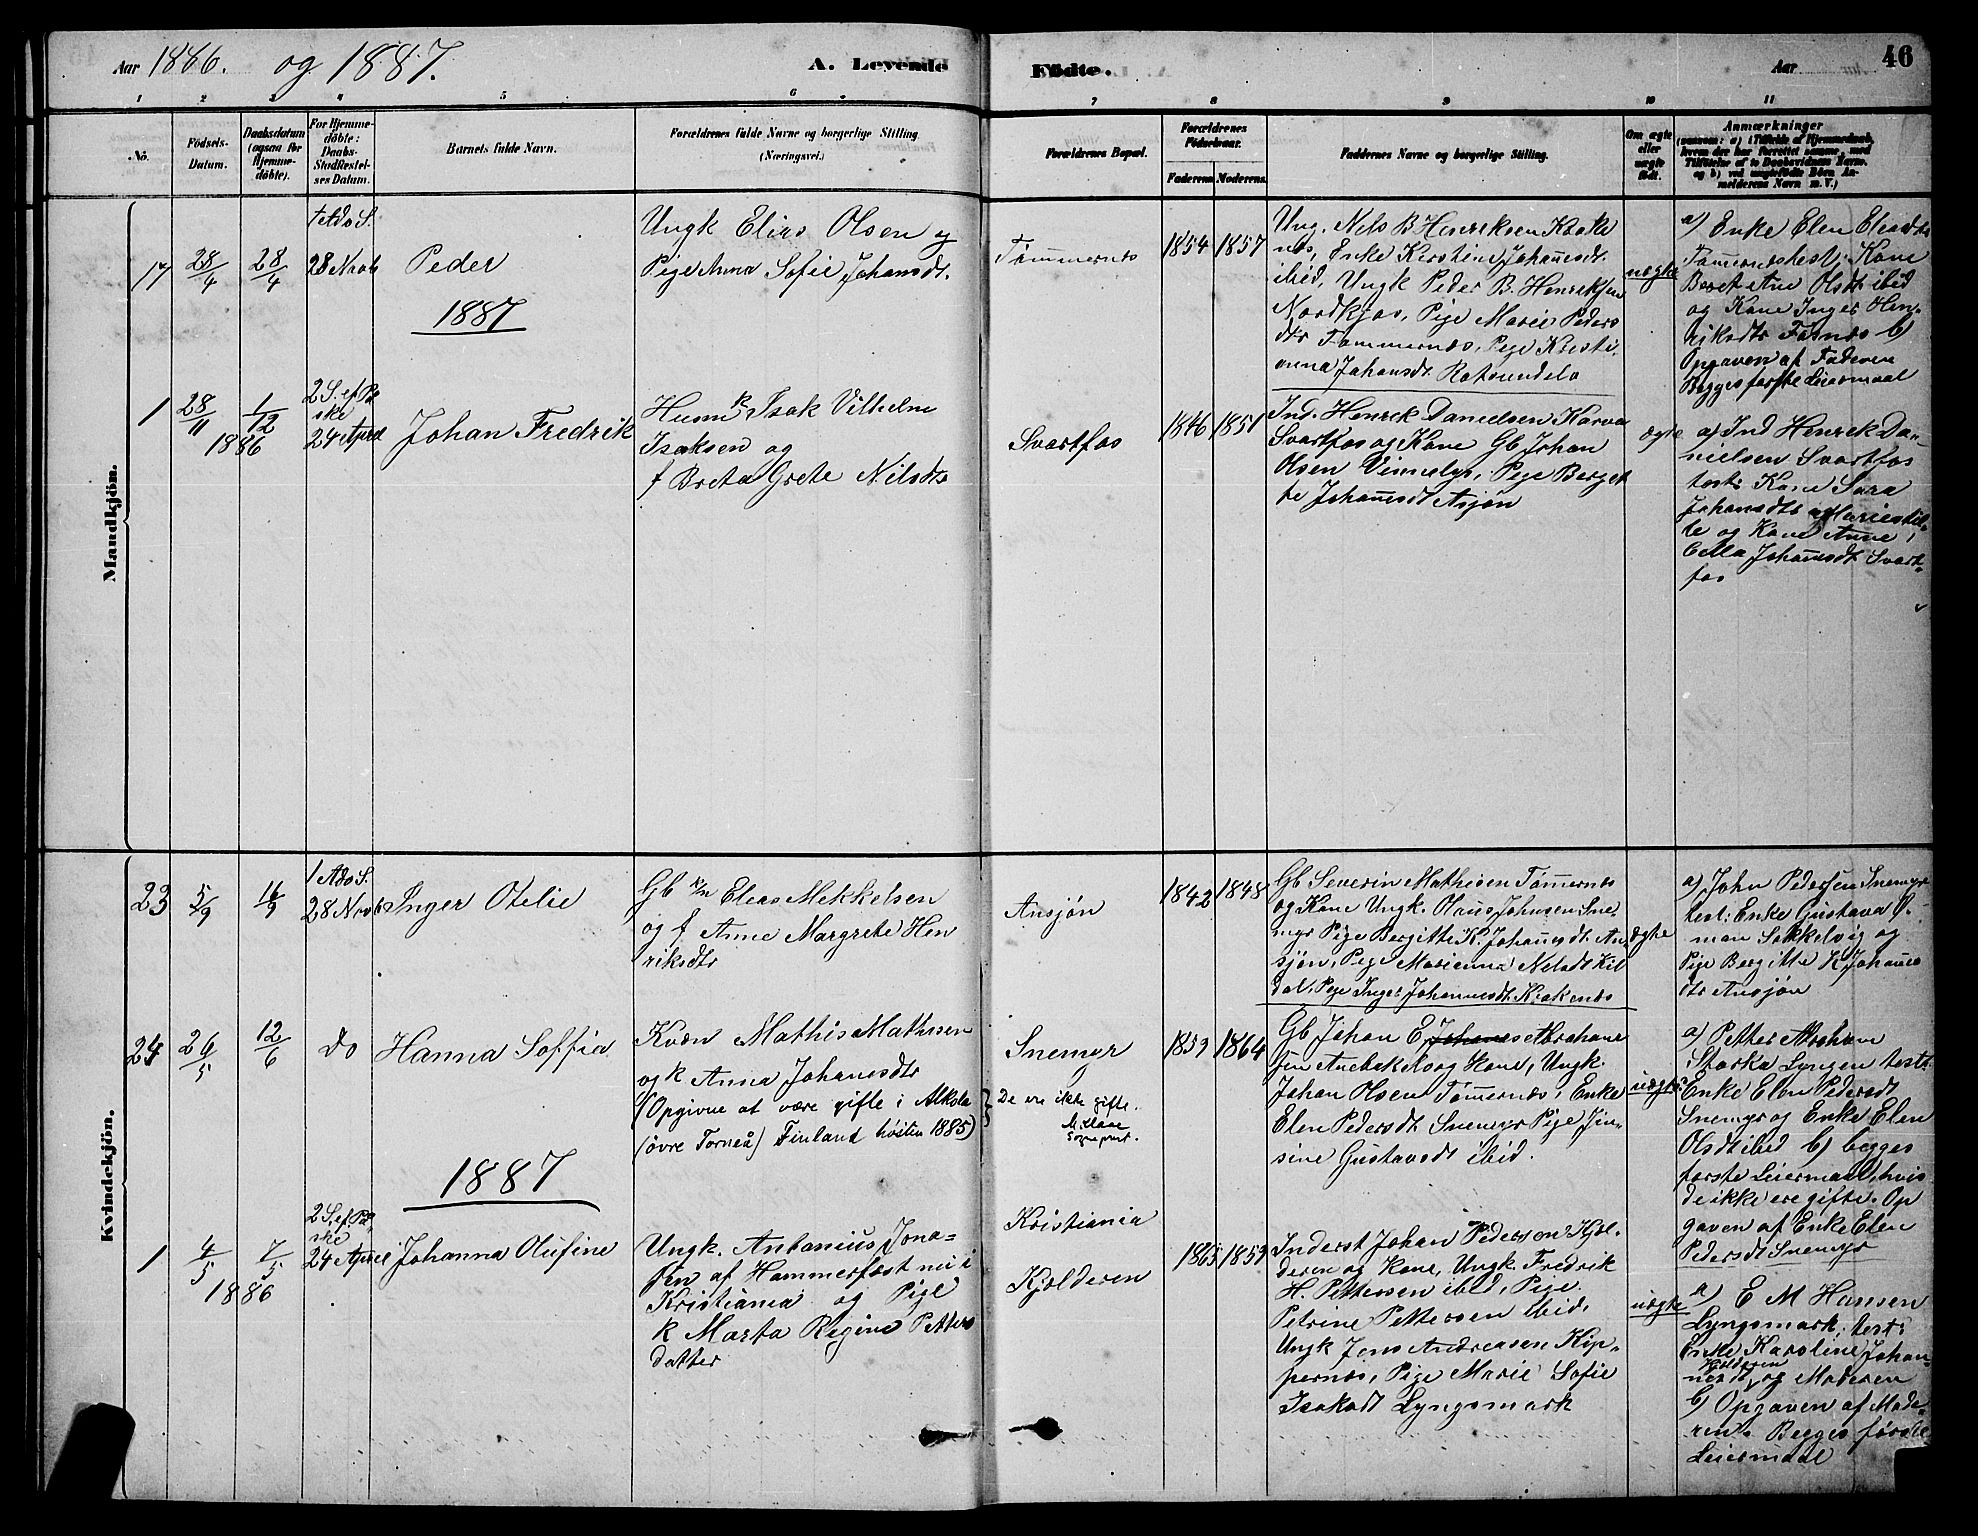 Aar 1886. og 1887.
A. Levende Födte.
Aar
46
1 2 3 4 5 6 7 8 9 10 11
No.
Födsels-
Datum.
Daabsdatum
(ogsaa for
Hjemme-
döbte).
For Hjemme-
döbte:
Daabs-
Stadfæstel-
ses Datum.
Barnets fulde Navn.
Forældrenes fulde Navne og borgerlige Stilling.
(Næringsvei.)
Forældrenes Bopæl.
Forældrenes
Födselsaar.
Faderens Moderens.
Faddernes Navne og borgerlige Stilling.
Om ægte
eller
uægte
födt.
Anmærkninger
(saasom: a) i Tilfælde af Hjemmedaab,
hvem der har forrettet samme, med
Tilföielse af to Daabsvidners Navne,
og b) ved uægtefödte Börn An-
melderens Navn m. V.)
Mandkjön.
17
28/4
28/4
1 Ado S.
28 Novb
Peder
Ungk Elias Olsen og
Pige Anna Sofie Johansdt.
Tømmernes
1854 1857
Ung. Nils B Henriksen Krake
nes, Enke Kirstine Johañesdt.
ibid, Ungk Peder B. Henriksen
Nordkjos, Pige Marie Peders
dtr Tømmernes, Pige Kristi,
anna Johansdt. Rotsundelv
uægte
a) Enke Elen Eliasdtr
Tømernes test: Kone
Beret Ane Olsdtr ibid
og Kone Inger Hen-
riksdtr Fosnes b)
Opgaven af Faderen
Begges første Leiermaal
1887
1
28/11
1/12
1886
2 S. ef. Pa
ske
24 April
Johan Fredrik
Husm k Isak Vilhelm
Isaksen og
f Breta Grete Nilsdtr
Svartfos
1846 1851
Ind. Henrek Danielsen Karva
Svartfos og Kone Gb Johan
Olsen Vinnelys, Pige Berget
te Johañesdt Asjøn
ægte
a) Ind Henrek Da-
nielsen Svartfos
test: Kone Sara
Johansdtr Mariestil-
le og Kone Anne
Cella Johañesdt Svart-
fos
Kvindekjön.
23
5/9
16/9
1 Ado S.
28 Novb
Inger Otelie
Gb k/n Elias Mekkelsen
og f Anne Margrete Hen
riksdtr
Ansjøn
1842 1848
Gb Severin Mathisen Tømernes
og Kone Ungk. Olaus Johnsen Sne-
myr Pige Bergitte K. Johañesdt. An-
sjøn, Pige Marianna Nelsdt Kil
dal, Pige Inger Johannesdt. Krakenes
ægte
a) John Pedersen Snemyr
test: Enke Gustava Ø-
man Sokkelvig og
Pige Bergitte K Johañes
dtr Ansjøn
24
26/5
12/6
do
Hanna Soffia
Kvæn Mathis Mathisen
og k Anna Johanesdtr
(Opgivne at være gifte i Alkola
(övre Torneå) Finland høsten 1885)
Snemyr
De ere ikke gifte.
1853 1864
Gb Johan E Johanes Abrahams
sen Anebak Aas og Kone, Ungk.
Johan Olsen Tømernes, Enke
Elen Pedersdt Snemyr Pige Jen-
sine Gustavsdt ibid.
uægte
a) Petter Abraham
Storka Lyngen test:
Enke Elen Pedersdt
Snemyr og Enke Elen
Olsdt ibid b) begges
første Leiermaal, hvis
de ikke ere gifte. Op
gaven af Enke Elen
Pedersdt Snemyr
1887
1
4/5
7/5
1886
2 S. ef. Pa
ske
24 April
Johanna Olufine
Ungk. Antonius Jona-
sen af Hammerfest nu i
Kristiania og Pige
k Marta Regine Petters
datter
Kristiania
Kjolderen
1865 1853
Inderst Johan Pedersen Kjol-
deren og Kone, Ungk. Fredrik
H. Pettersen ibid, Pige
Petrine Pettersen ibid,
Ungk Jens Andreasen Kip-
pernes, Pige Marie Sofie
Isaksdt Lyngsmark
uægte
a) E M Hansen
Lyngsmark, test:
Enke Karoline Johan-
nesdt Kjolderen og Moderen
b) Opgaven af Mode-
ren. Begges første
Leiermaal